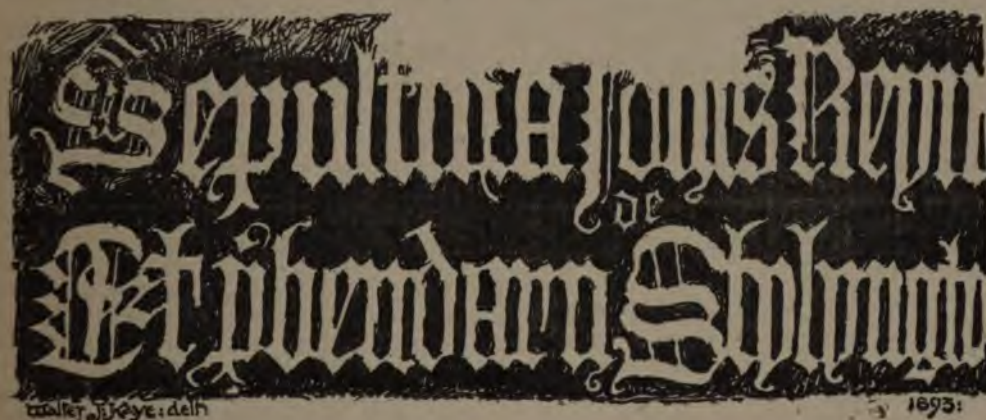 Sepultura Johis Reyn
de
Et p̃bendarii Stylyngto
Walter J: Kaye: delt 1893: